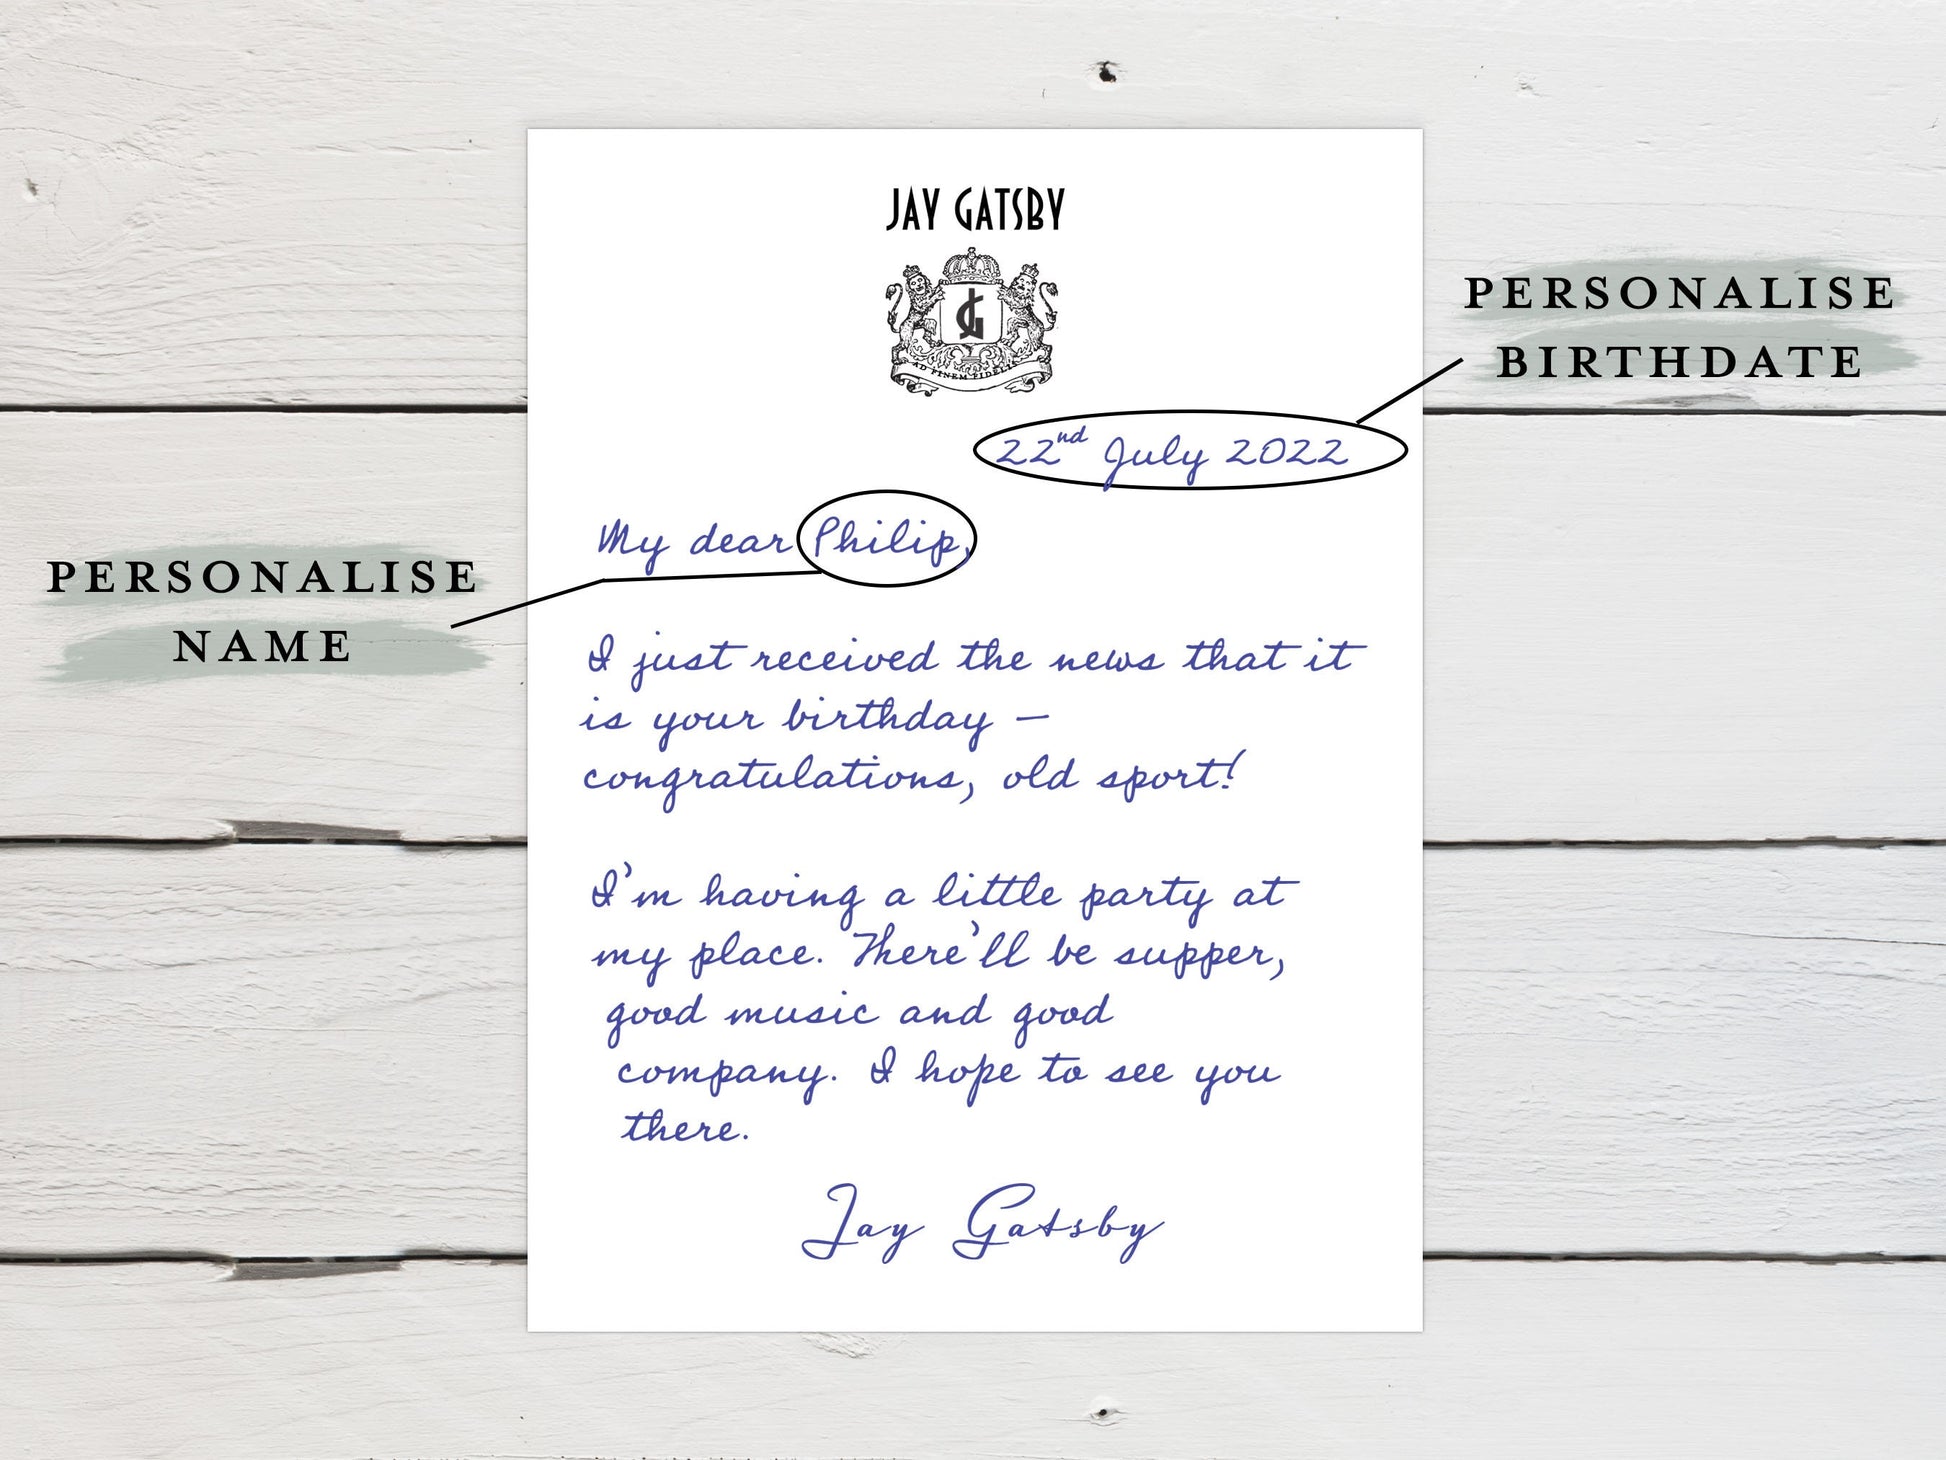 JAY GATSBY
JG
AD FINEM FIDELIS
PERSONALISE
BIRTHDATE
22nd July 2022
My dear Philip,
PERSONALISE
NAME
I just received the news that it
is your birthday –
congratulations, old sport!
I'm having a little party at
my place. There'll be supper,
good music and good
company. I hope to see you
there.
Jay Gatsby